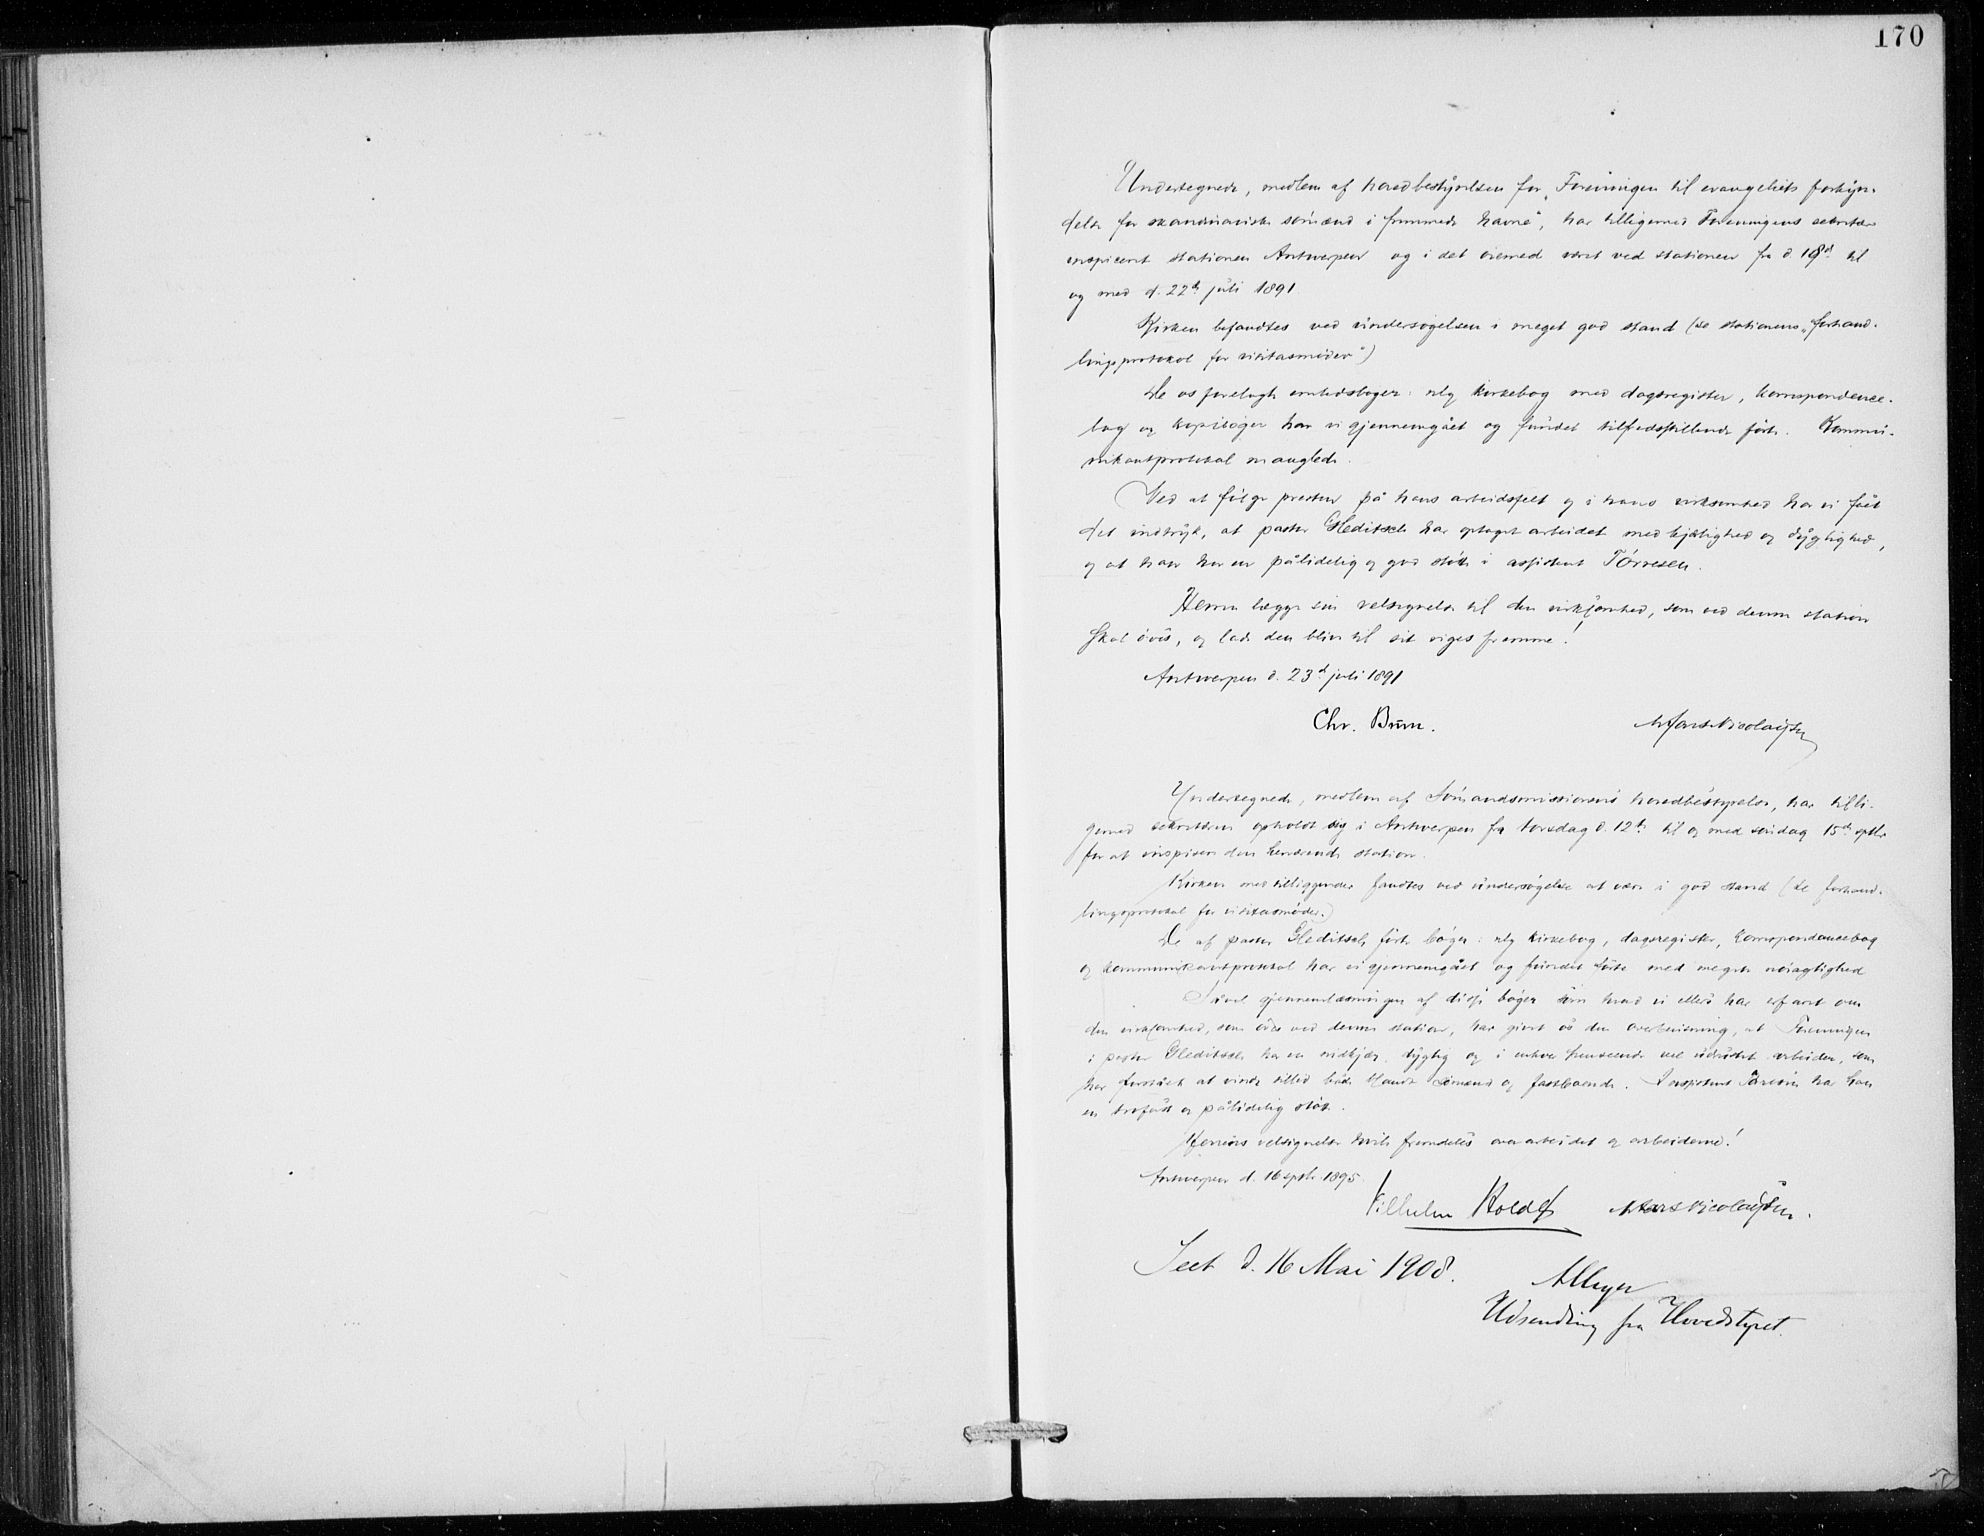 170
Undertegnede, medlem af hovedbestyrelsen for „Foreningen til evangeliets forkyn-
delse for skandinaviske sømænd i fremmede havne“, har tilligemed Foreningens sekretær
inspiceret stationen Antwerpen og i det øiemed været ved stationen fra d. 18d til
og med d. 22de juli 1891
Kirken befandtes ved undersøgelsen i meget god stand (se stationens „forhand-
lingsprotokol for visitasmøder“)
De os forelagte embedsbøger: nlg kirkebog med dagsregister, korrespondence-
bog og kopibøger har vi gjennemgået og fundet tilfredsstillende førte. Kommu-
nikantprotokol manglede.
Ved at følge presten på hans arbeidsfelt og i hans virksomhed har vi fået
det indtryk, at pastor Gleditsch har optaget arbeidet med kjærlighed og dygtighed,
og at han har en pålidelig og god støtte i assistent Tørresen.
Herren lægge sin velsignelse til den virksomhed, som ved denne station
skal øves, og lade den blive til sit riges fremme!
Antwerpen d. 23d juli 1891
Chr. Bruun. Nicolaissen
Undertegnede, medlem af Sømandsmissionens hovedbestyrelse, har tilli-
gemed sekretæren opholdt sig i Antwerpen fra torsdag d. 12te til og med søndag 15de septbr
for at inspicere den herværende station.
Kirken med tilliggender fandtes ved undersøgelse at være i god stand (se forhand-
lingsprotokol for visitasmøder.)
De af pastor Gleditsch førte bøger: nlg kirkebog, dagsregister, korrespondancebog
og kommunikantprotokol har vi gjennemgået og fundet førte med megen nøiagtighed
Såvel gjennemlæsningen af disse bøger som hvad vi ellers har erfaret om
den virksomhed, som øves ved denne station, har givet os den overbevisning, at Foreningen
i pastor Gleditsch har en nidkjær, dygtig og i enhver henseende vel udrustet arbeider, som
har forstået at vinde tillid både blandt sømænd og fastboende. I assistent Tørresen har han
en trofast og pålidelig støtte.
Herrens velsignelse hvile fremdeles over arbeidet og arbeiderne!
Antwerpen d. 16 septbr 1895.
Vilhelm Koldt Nicolaissen.
Seet d. 16 Mai 1908.
AMeyer
Udsending fra Hovedstyret.